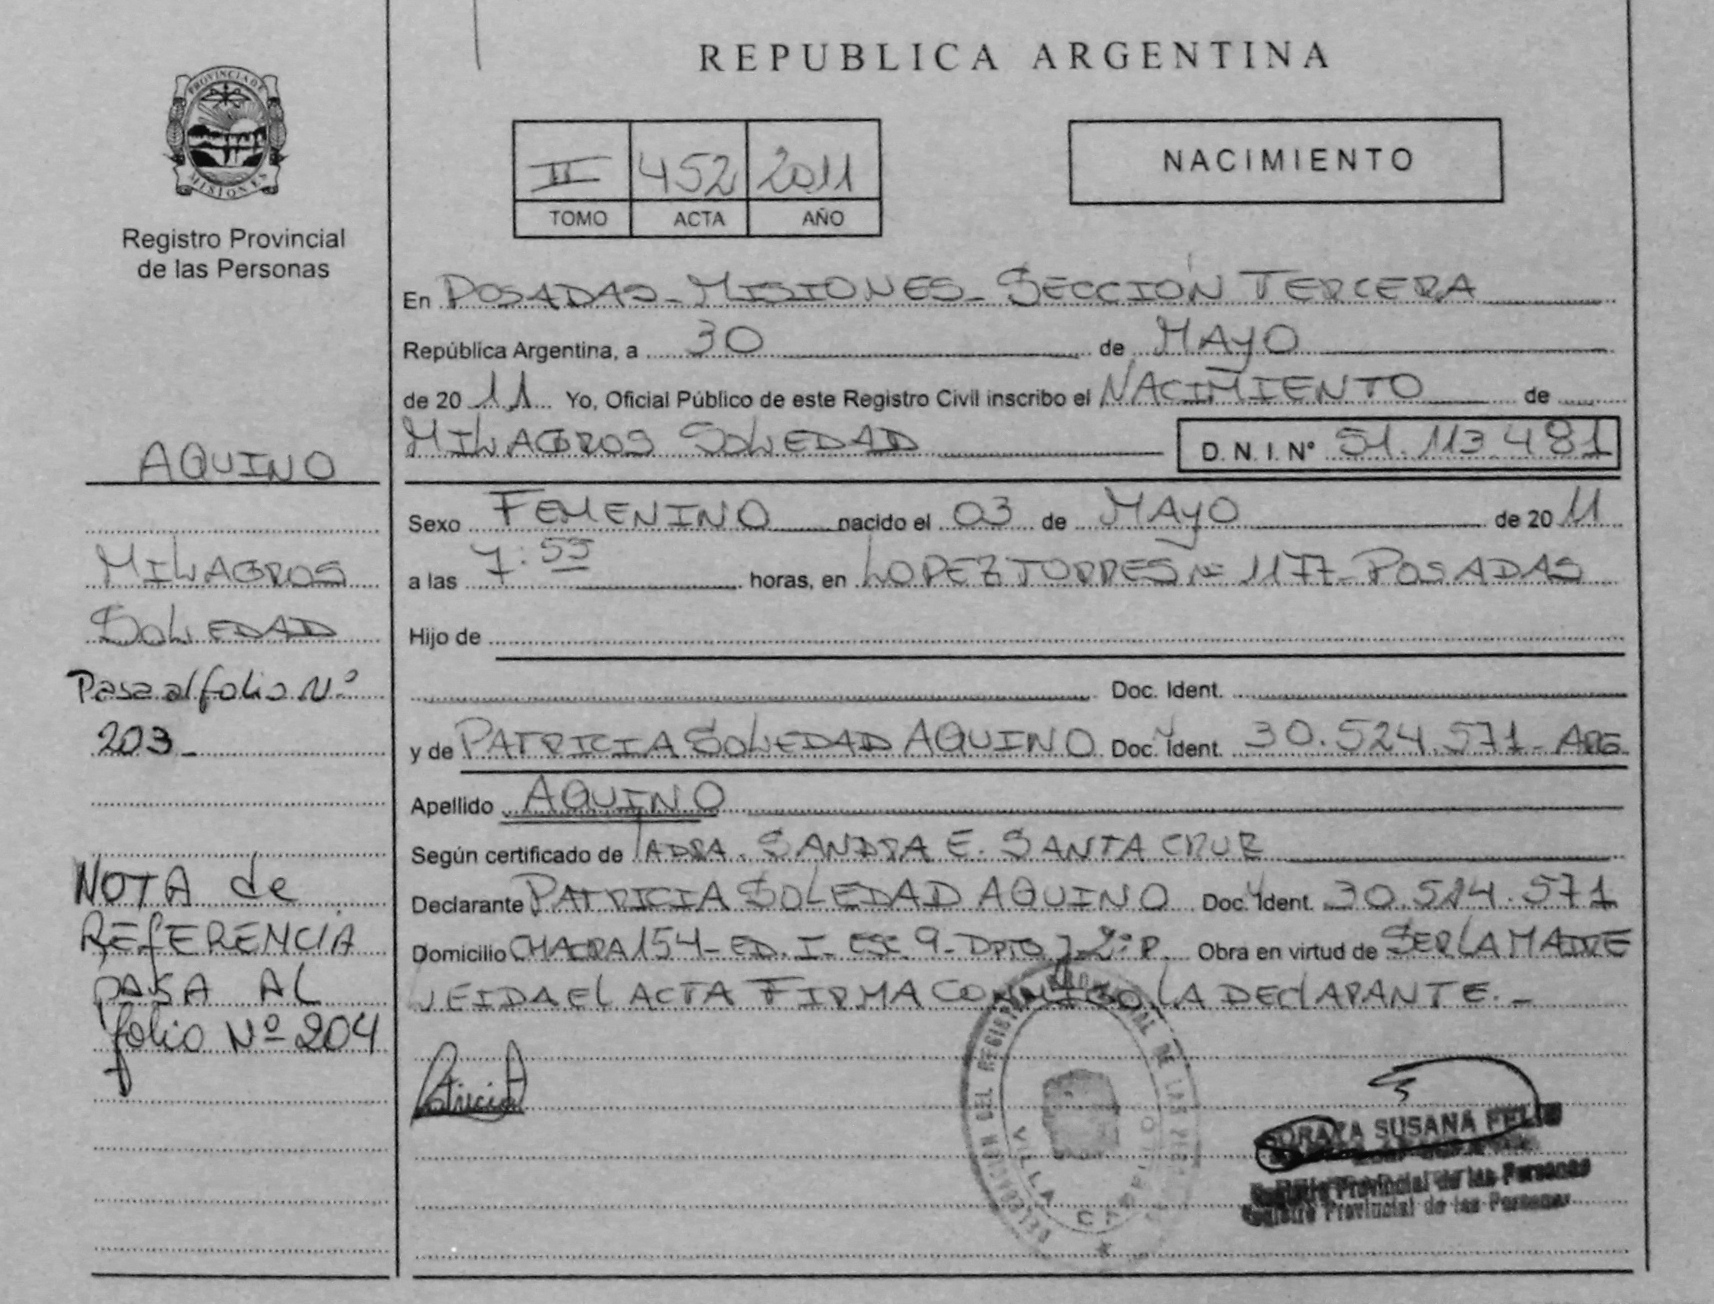 PROVINCIA DE
MISIONES
Registro Provincial
de las Personas
AQUINO
MILAGROS
SOLEDAD
Pasa al folio Nº
203_
NOTA de
REFERENCIA
PASA AL
folio Nº 204
REPUBLICA ARGENTINA
II 452 2011
TOMO ACTA AÑO
NACIMIENTO
En POSADAS_MISIONES_SECCIÓN TERCERA
República Argentina, a 30 de MAYO
de 2011 Yo, Oficial Público de este Registro Civil inscribo el NACIMIENTO de
MILAGROS SOLEDAD D. N. I. Nº 51.113.481
Sexo FEMENINO nacido el 03 de MAYO de 2011
a las 7:55 horas, en LOPEZ TORRES Nº 1177_POSADAS
Hijo de
Doc. Ident.
y de PATRICIA SOLEDAD AQUINO Doc. Ident. 30.524.571_ARG
Apellido AQUINO
Según certificado de SANDRA E. SANTA CRUZ
Declarante PATRICIA SOLEDAD AQUINO Doc. Ident. 30.524.571
Domicilio CHACRA 154_ED. I_ESC 9_DPTO J_2º P. Obra en virtud de SER LA MADRE
LEIDA EL ACTA FIRMA CONMIGO LA DECLARANTE._
Patricia
DELEGACION DEL REGISTRO PROVINCIAL DE LAS
VILLA CABELLO
SORAYA SUSANA FELIU
Registro Provincial de las Personas
Registro Provincial de las Personas